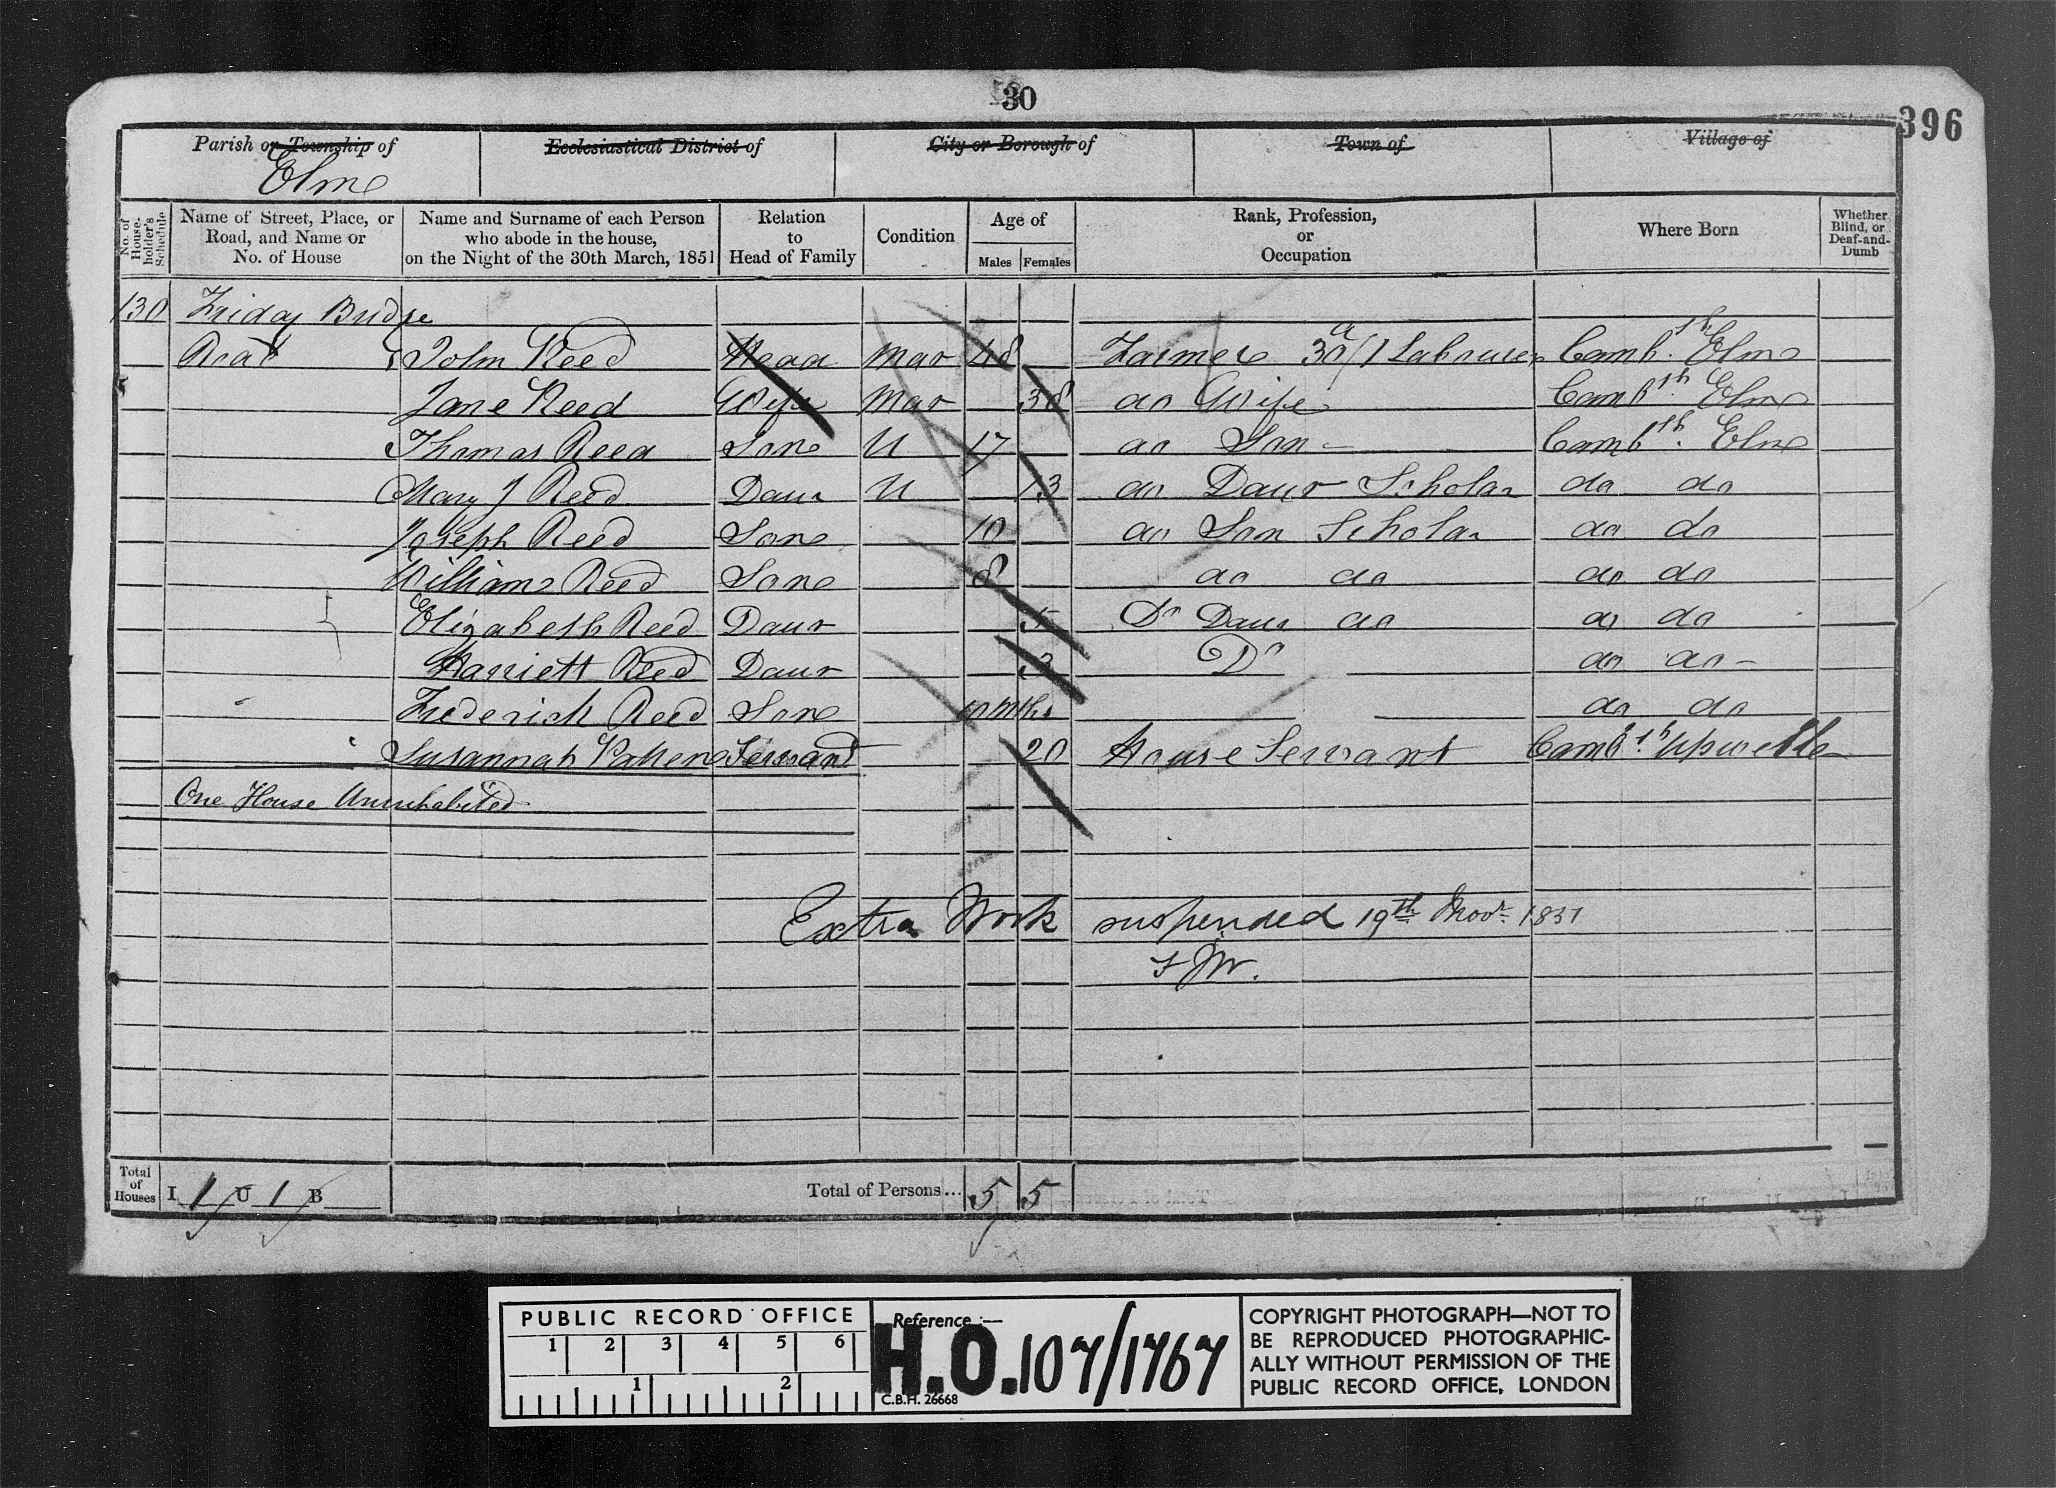 30
396
Parish or Township of Ecclesiastical District of City or Borough of Town of Village of
Elm
No. of House-holder's Schedule
Name of Street, Place, or Road, and Name or No. of House
Name and Surname of each Person who abode in the house, on the Night of the 30th March, 1851
Relation to Head of Family
Condition
Age of
Males Females
Rank, Profession, or Occupation
Where Born
Whether Blind, or Deaf-and-Dumb
130 Friday Bridge
Road John Reed Head Mar 48 Farmer 30 a/1 Labourer Cambsh Elm
Jane Reed Wife Mar 38 do Wife Cambsh Elm
Thomas Reed Son U 17 do Son Cambsh. Elm
Mary J Reed Daur U 13 do Daur Scholar do do
Joseph Reed Son 10 do Son Scholar do do
William Reed Son 8 do do do do
Elizabeth Reed Daur 5 Do Daur do do do
Harriett Reed Daur 3 Do do do
Frederick Reed Son 10 Mths do do
Susannah Servant 20 House Servant Cambsh. Upwell
One House Uninhabited
Extra Work suspended 19th Novr 1851
Total of Houses I 1 U 1 B Total of Persons... 5 5
PUBLIC RECORD OFFICE
1 2 3 4 5 6
1 2
Reference :—
H.O. 107/1767
C.B.H. 26668
COPYRIGHT PHOTOGRAPH—NOT TO
BE REPRODUCED PHOTOGRAPHIC-
ALLY WITHOUT PERMISSION OF THE
PUBLIC RECORD OFFICE, LONDON